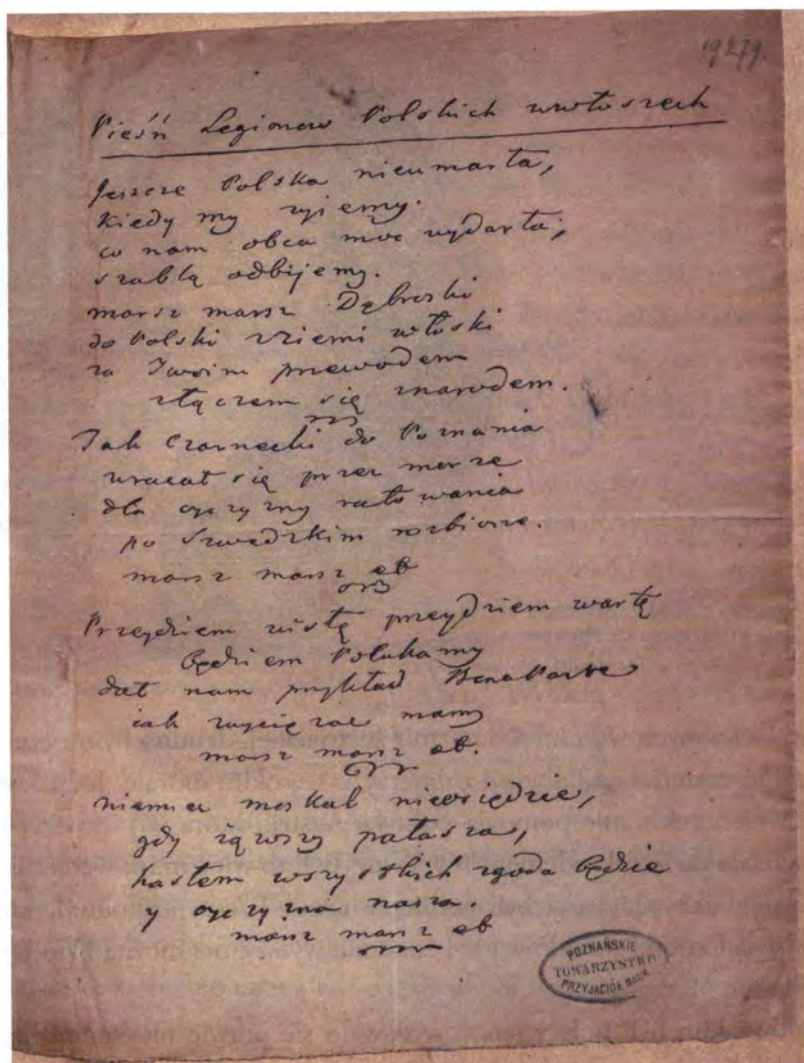 19279.
Pieśń Legionow Polskich wwłoszech
Jeszcze Polska nieumarła,
kiedy my żyiemy.
co nam obca moc wydarła,
szablą odbijemy.
marsz marsz Dąbroski
do Polski zziemi włoski
za Twoim przewodem
złączem się znarodem.
Jak Czarnecki do Poznania
wracał się przez morze
dla oyczyzny ratowania
po Szwedzkim rozbiorze.
marsz marsz etc
Przeydziem wisłę przeydziem wartę
będziem Polakamy
dał nam przykład Bonaparte
iak zwyciężać mamy
marsz marsz etc.
niemiec moskal nieosiędzie,
gdy iąwszy pałasza,
hasłem wszystkich zgoda będzie
y oyczyzna nasza.
marsz marsz etc
POZNAŃSKIE
TOWARZYSTWO
PRZYJACIÓŁ NAUK